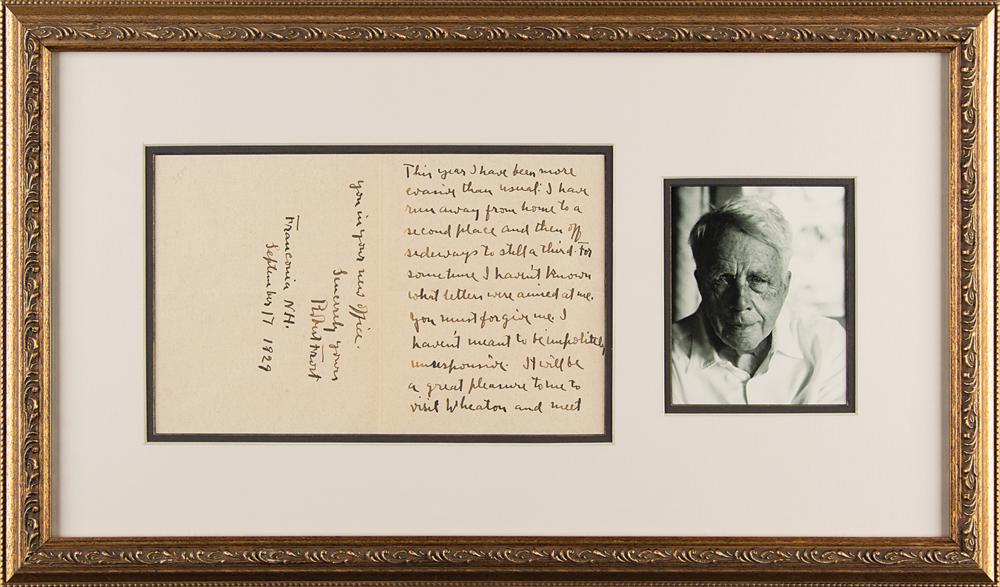 This year I have been more
evasive than usual: I have
run away from home to a
second place and then off
sideways to still a third. For
sometime I haven't known
what letters were aimed at me.
You must forgive me. I
haven't meant to be impolitely
unresponsive. It will be
a great pleasure to me to
visit Wheaton and meet
you in your new office.
Sincerely yours
Robert Frost
Franconia N.H.
September 17 1929